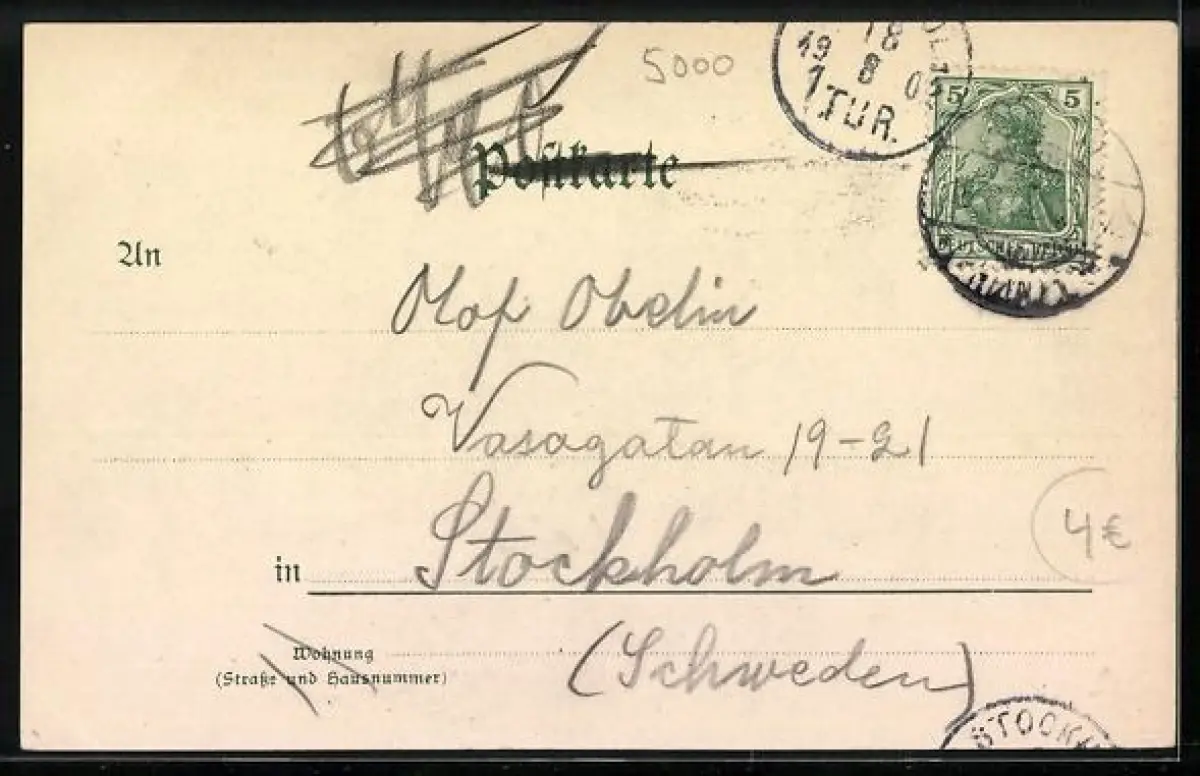 5000
18
19 8 05
1.TUR.
5 5
Postkarte
DEUTSCHES REICH
An
Olof Obelin
Vasagatan 19-21
in Stockholm
4€
Wohnung
(Straße und Hausnummer)
(Schweden)
STOCKH